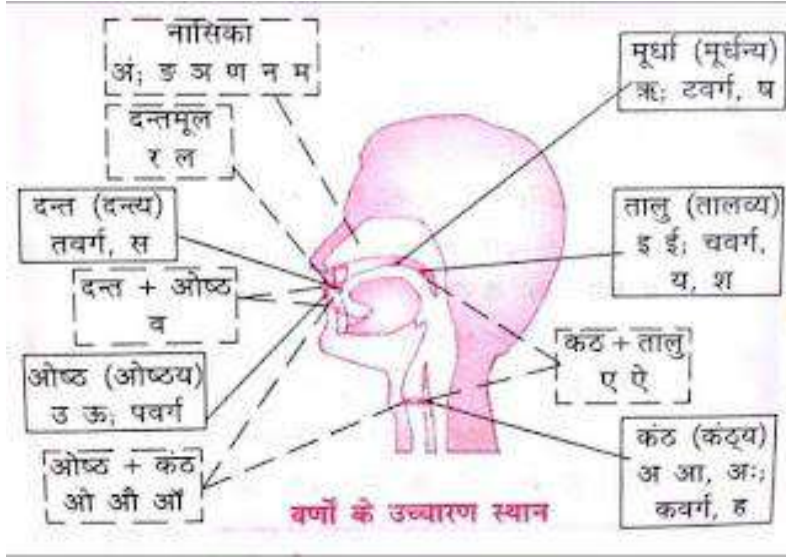 नासिका
अं; ङ ञ ण न म
दन्तमूल
र ल
दन्त (दन्त्य)
तवर्ग, स
दन्त + ओष्ठ
व
ओष्ठ (ओष्ठय)
उ ऊ; पवर्ग
ओष्ठ + कंठ
ओ औ ऑ
मूर्धा (मूर्धन्य)
ऋ; टवर्ग, ष
तालु (तालव्य)
इ ई; चवर्ग,
य, श
कंठ + तालु
ए ऐ
कंठ (कंठ्य)
अ आ, अः;
कवर्ग, ह
वर्णों के उच्चारण स्थान